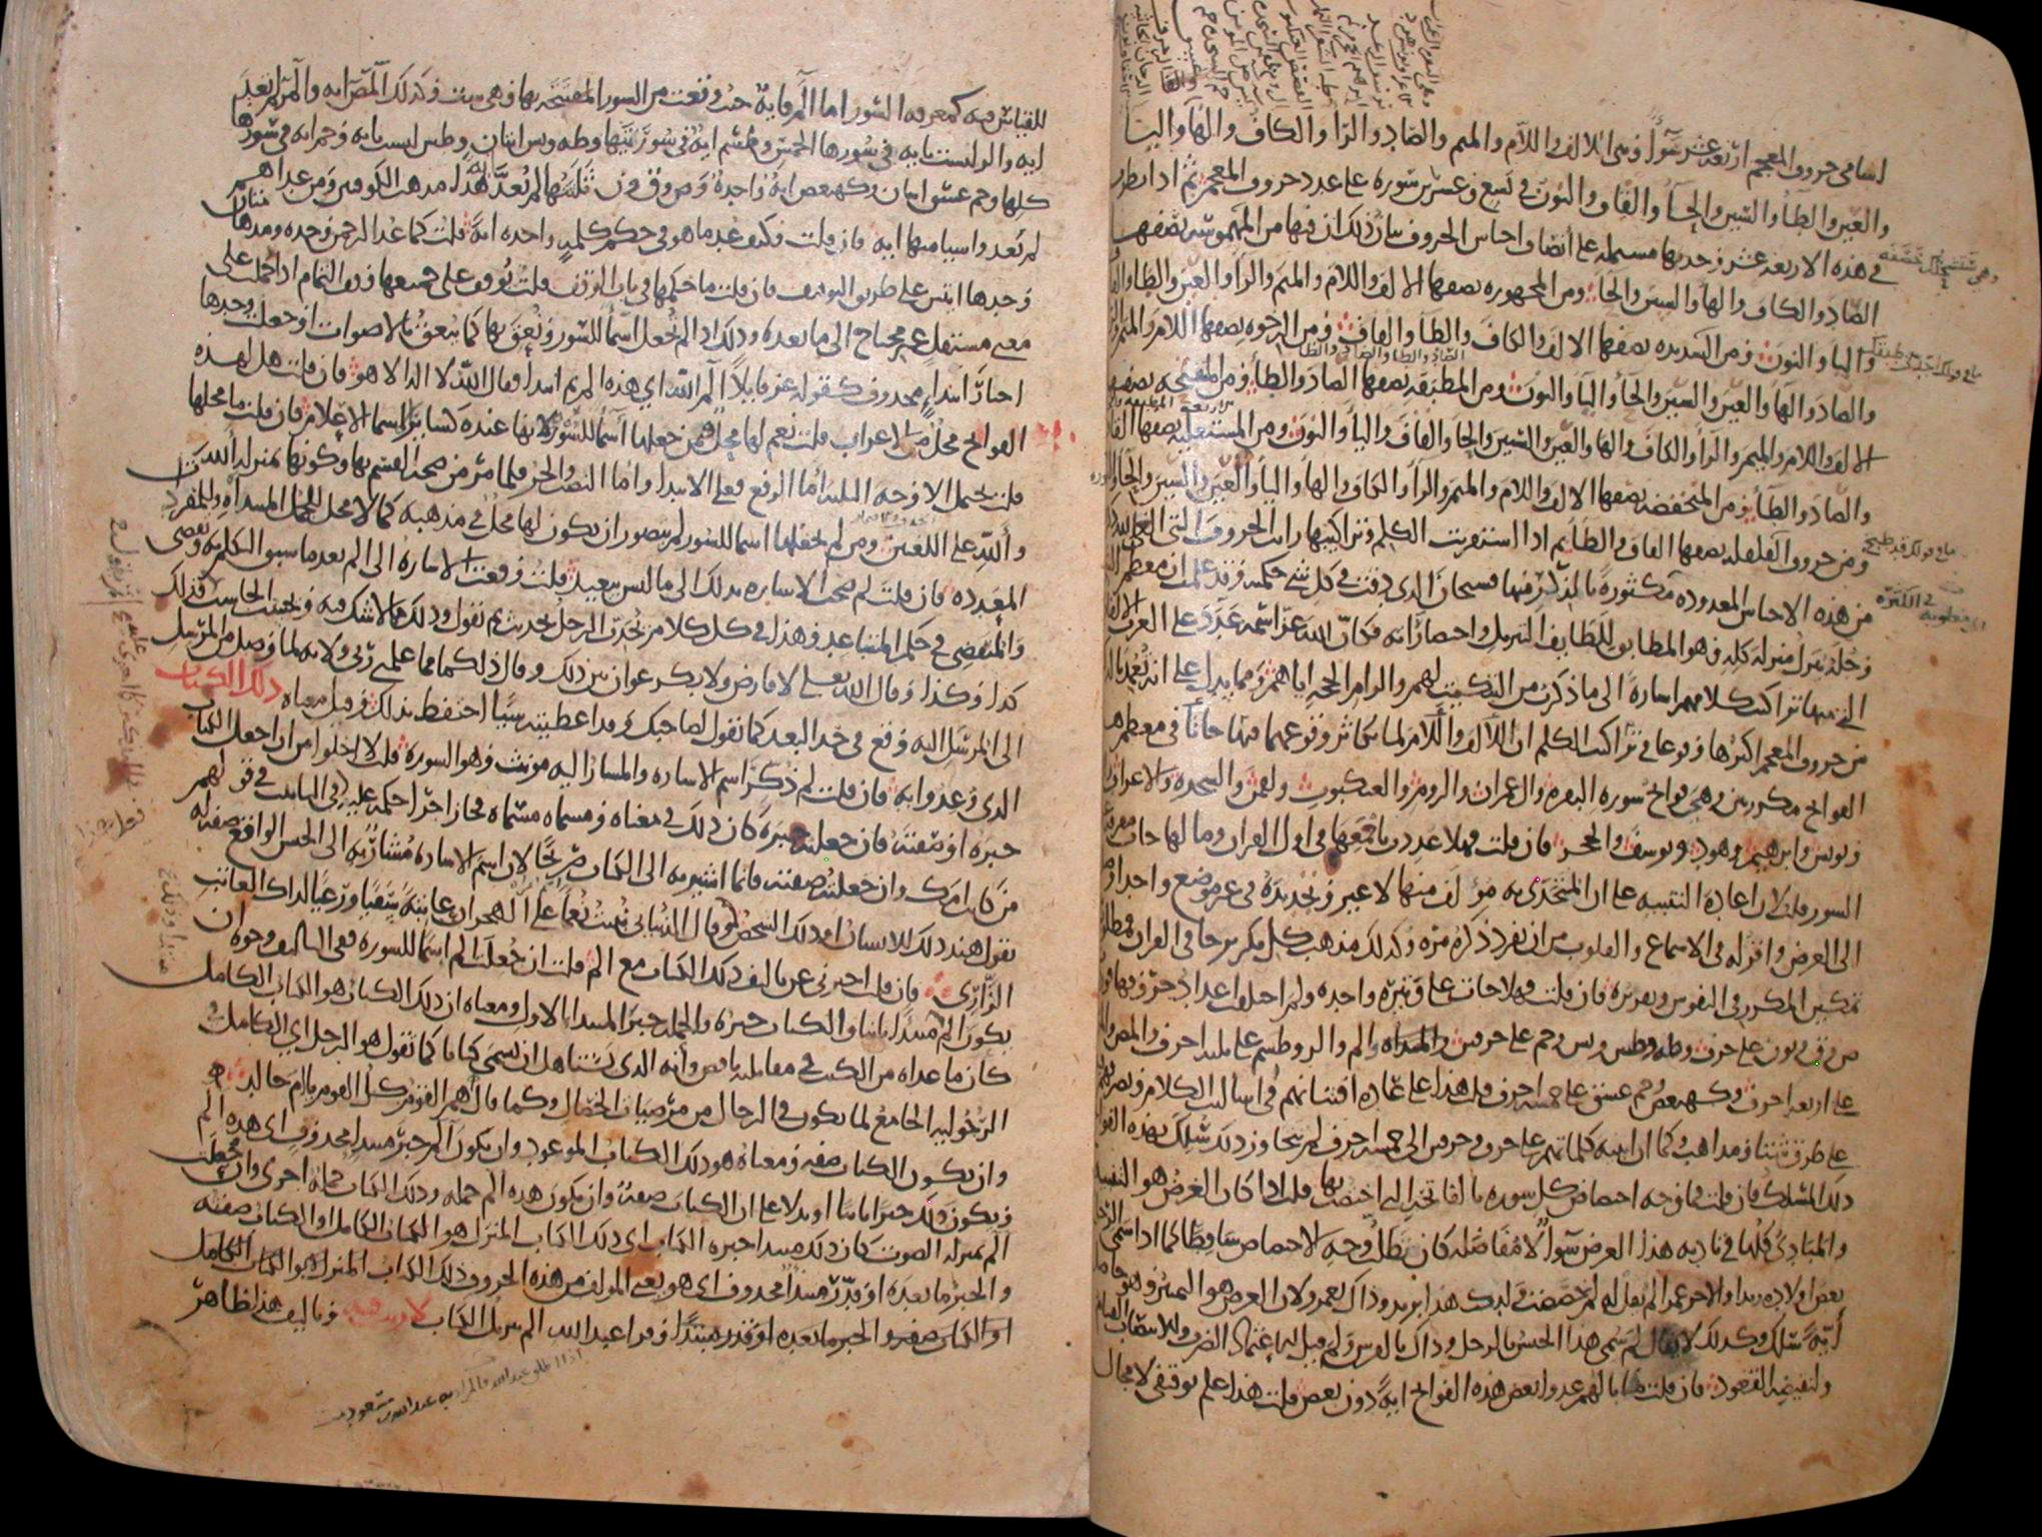 اسامى حروف المعجم اربعة عشر سوآء وهى الالف واللام والميم والصاد والرا والكاف والها واليا
والعين والطا والسين والحا والقاف والنون فى تسع وعشرين سورة على عدد حروف المعجم ثم اذا نظرت
فى هذه الاربعة عشر وجدتها مشتملة على انصاف اجناس الحروف بيان ذلك ان فيها من المهموسة نصفها
الصاد والكاف والها والسين والحا ومن المجهورة نصفها الالف واللام والميم والرا والعين والطا والقاف
واليا والنون ومن الشديدة نصفها الالف والكاف والطا والقاف ومن الرخوة نصفها اللام والميم والرا
والصاد والها والعين والسين والحا واليا والنون ومن المطبقة نصفها الصاد والطا ومن المنفتحة نصفها
الالف واللام والميم والرا والكاف والها والعين والسين والحا والقاف واليا والنون ومن المستعلية نصفها القاف
والصاد والطا ومن المنخفضة نصفها الالف واللام والميم والرا والكاف والها واليا والعين والسين والحا والنون
ومن حروف القلقلة نصفها القاف والطا ثم اذا استقريت الكلم وتراكيبها رايت الحروف التى الغى الله ذكرها
من هذه الاجناس المعدودة مكثورة بالمذكورة منها فسبحان الذى دقت فى كل شى حكمته وقد علمت ان معظم الشى
وجله ينزل منزلة كله وهو المطابق للطايف التنزيل واختصاراته فكان الله عز اسمه عدد على العرب الالفاظ
التى منها تراكيب كلامهم اشارة الى ما ذكرت من التبكيت لهم والزام الحجة اياهم ومما يدل على انه تعمد بالذكر
من حروف المعجم اكثرها وقوعا فى تراكيب الكلم ان الالف واللام لما تكاثر وقوعهما فيها جاتا فى معظم هذه
الفواتح مكررتين وهى فواتح سورة البقرة وال عمران والروم والعنكبوت ولقمن والسجدة والاعراف والرعد
ويونس وابرهيم وهود ويوسف والحجر فان قلت فهلا عددت باجمعها فى اول القران وما لها جات مفرقة على
السور قلت لان اعادة التنبيه على ان المتحدى به مولف منها لا غير وتجديده فى غير موضع واحد اوصل
الى الغرض واقر له فى الاسماع والقلوب من ان يفرد ذكره مرة وكذلك مذهب كل تكرير جا فى القران فمطلوب به
تمكين المكرر فى النفوس وتقريره فان قلت فهلا جات على وتيرة واحدة ولم اختلفت اعداد حروفها فوردت
ص وق ون على حرف وطه وطس ويس وحم على حرفين والم والر وطسم على ثلثة احرف والمص والمر
على اربعة احرف وكهيعص وحم عسق على خمسة احرف قلت هذا على عادة افتنانهم فى اساليب الكلام وتصرفهم فيه
على طرق شتى ومذاهب وكما ان ابنية كلماتهم على حرف وحرفين الى خمسة احرف لم تتجاوز ذلك سلك بهذه الفواتح
ذلك المسلك فان قلت فما وجه اختصاص كل سورة بالفاتحة التى اختصت بها قلت اذا كان الغرض هو التنبيه
والمبادى كلها فى تادية هذا الغرض سوآ لا مفاضلة كان تطلب وجه الاختصاص ساقطا كما اذا سمى الرجل
بعض اولاده زيدا والاخر عمرا لم يقل له لم خصصت ولدك هذا بزيد وذاك بعمرو لان الغرض هو التمييز وهو حاصل
اية سلك وكذلك لا يقال لم سمى هذا الجنس بالرجل وذاك بالفرس ولم قيل للاعتماد الضرب وللانتصاب القيام
ولنقيضه القعود فان قلت ما بالهم عدوا بعض هذه الفواتح اية دون بعض قلت هذا علم توقيفى لا مجال
للقياس فيه كمعرفة السور اما الم فاية حيث وقعت من السور المفتتحة بها وهى ست وكذلك المص اية والمر لم تعد
اية والر ليست باية فى سورها الخمس وطسم اية فى سورتيها وطه ويس ايتان وطس ليست باية وحم اية فى سورها
كلها وحم عسق ايتان وكهيعص اية واحدة وص وق ون ثلثتها لم تعد اية هذا مذهب الكوفيين ومن عداهم
لم يعدوا شيا منها اية فان قلت فكيف عد ما هو فى حكم كلمة واحدة اية قلت كما عد الرحمن وحده ومدهامتان
وحدها ايتين على طريق التوقيف فان قلت ما حكمها فى باب الوقف قلت يوقف على جميعها وقف التمام اذا حملت على
معنى مستقل غير محتاج الى ما بعده وذلك اذا لم تجعل اسما للسور ونعق بها كما ينعق بالاصوات او جعلت وحدها
اخبار ابتداء محذوف كقوله عز قايلا الم الله اى هذه الم ثم ابتدا وقال الله لا اله الا هو فان قلت هل لهذه
الفواتح محل من الاعراب قلت نعم لها محل فيمن جعلها اسما للسور لانها عنده كسائر الاسما الاعلام فان قلت ما محلها
قلت يحتمل الاوجه الثلثة اما الرفع فعلى الابتدا واما النصب والجر فلما مر من صحة القسم بها وكونها بمنزلة الله
والله على اللغتين ومن لم يجعلها اسما للسور لم يتصور ان يكون لها محل فى مذهبه كما لا محل للجمل المبتداة وللمفردات
المعددة فان قلت لم صحت الاشارة بذلك الى ما ليس ببعيد قلت وقعت الاشارة الى الم بعد ما سبق التكلم به وتقضى
والمنقضى فى حكم المتباعد وهذا فى كل كلام يحدث الرجل بحديث ثم يقول وذلك ما لا شك فيه ويحسب الحاسب ثم يقول فذلك
كذا وكذا وقال الله تعلى لا فارض ولا بكر عوان بين ذلك وقال ذلكما مما علمنى ربى ولانه لما وصل من المرسل
الى المرسل اليه وقع فى حد البعد كما تقول لصاحبك وقد اعطيته شيا احتفظ بذلك وقيل معناه ذلك الكتاب
الذى وعدوا به فان قلت لم ذكر اسم الاشارة والمشار اليه مونث وهو السورة قلت لا اخلوا من ان اجعل الكتاب
خبره او صفته فان جعلته خبره كان ذلك فى معناه ومسماه مسماه فجاز اجرا حكمه عليه فى التذكير كما اجرى عليه فى التانيث فى قولهم
من كانت امك وان جعلته صفته فانما اشير به الى الكتاب صريحا لان اسم الاشارة مشار به الى الجنس الواقع صفة له
تقول هند ذلك الانسان او ذلك الشخص فعل كذا وقال الذبيانى نبئت نعما على الهجران عاتبة سقيا ورعيا لذاك العاتب
الزارى فان قلت اخبرنى عن تاليف ذلك الكتاب مع الم قلت ان جعلت الم اسما للسورة ففى التاليف وجوه ان
يكون الم مبتدا وذلك مبتدا ثانيا والكتاب خبره والجملة خبر المبتدا الاول ومعناه ان ذلك الكتاب هو الكتاب الكامل
كان ما عداه من الكتب فى مقابلته ناقص وانه الذى يستاهل ان يسمى كتابا كما تقول هو الرجل اى الكامل فى
الرجولية الجامع لما يكون فى الرجال من مرضيات الخصال وكما قال هم القوم كل القوم يا ام خالد
وان يكون الكتاب صفة ومعناه هو ذلك الكتاب الموعود وان يكون الم خبر مبتدا محذوف اى هذه الم
ويكون ذلك خبرا ثانيا او بدلا على ان الكتاب صفة وان يكون هذه الم جملة وذلك الكتاب جملة اخرى وان جعلت
الم بمنزلة الصوت كان ذلك مبتدا خبره الكتاب اى ذلك الكتاب المنزل هو الكتاب الكامل او الكتاب صفته
والخبر ما بعده او قدر مبتدا محذوف اى هو يعنى المولف من هذه الحروف ذلك الكتاب المنزل هو الكتاب الكامل
او الكتاب صفته والخبر ما بعده او قدر مبتدا وقرا عبد الله الم تنزيل الكتاب لا ريب فيه وتاليف هذا ظاهر
اذا اطلق عبد الله فالمراد به عبد الله بن مسعود